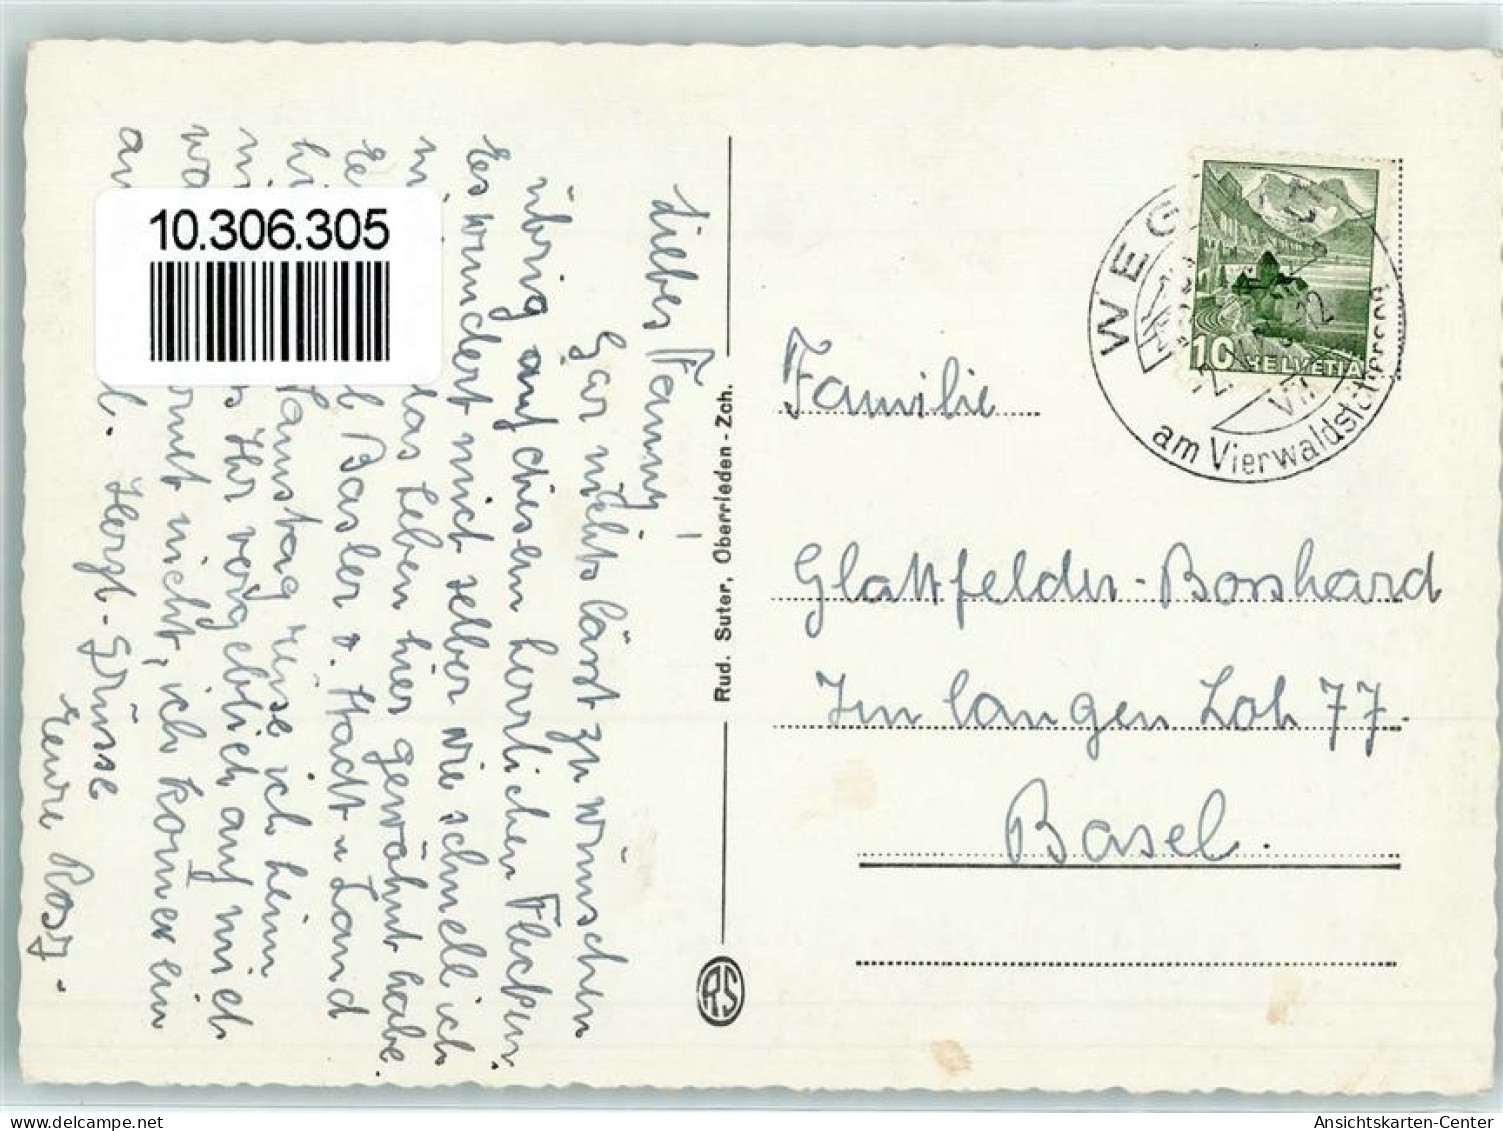 Liebes Fanny!
Gar nichts lässt zu wünschen
übrig auf diesem herrlichen Flecken.
Es wundert mich selber wie schnell ich
das Leben hier gewöhnt habe.
Basler o. Stadt u Land
Samstag reise ich heim
Ihr vergeblich auf mich
nicht, ich komer ein
Herzl. Grüsse
Eure Rosy.
10.306.305
Rud. Suter, Oberrieden - Zch.
RS
WEGGIS
am Vierwaldstättersee
VII
12
10 HELVETIA
Familie
Glattfelder-Bosshard
Im langen Loh 77.
Basel.
Ansichtskarten-Center